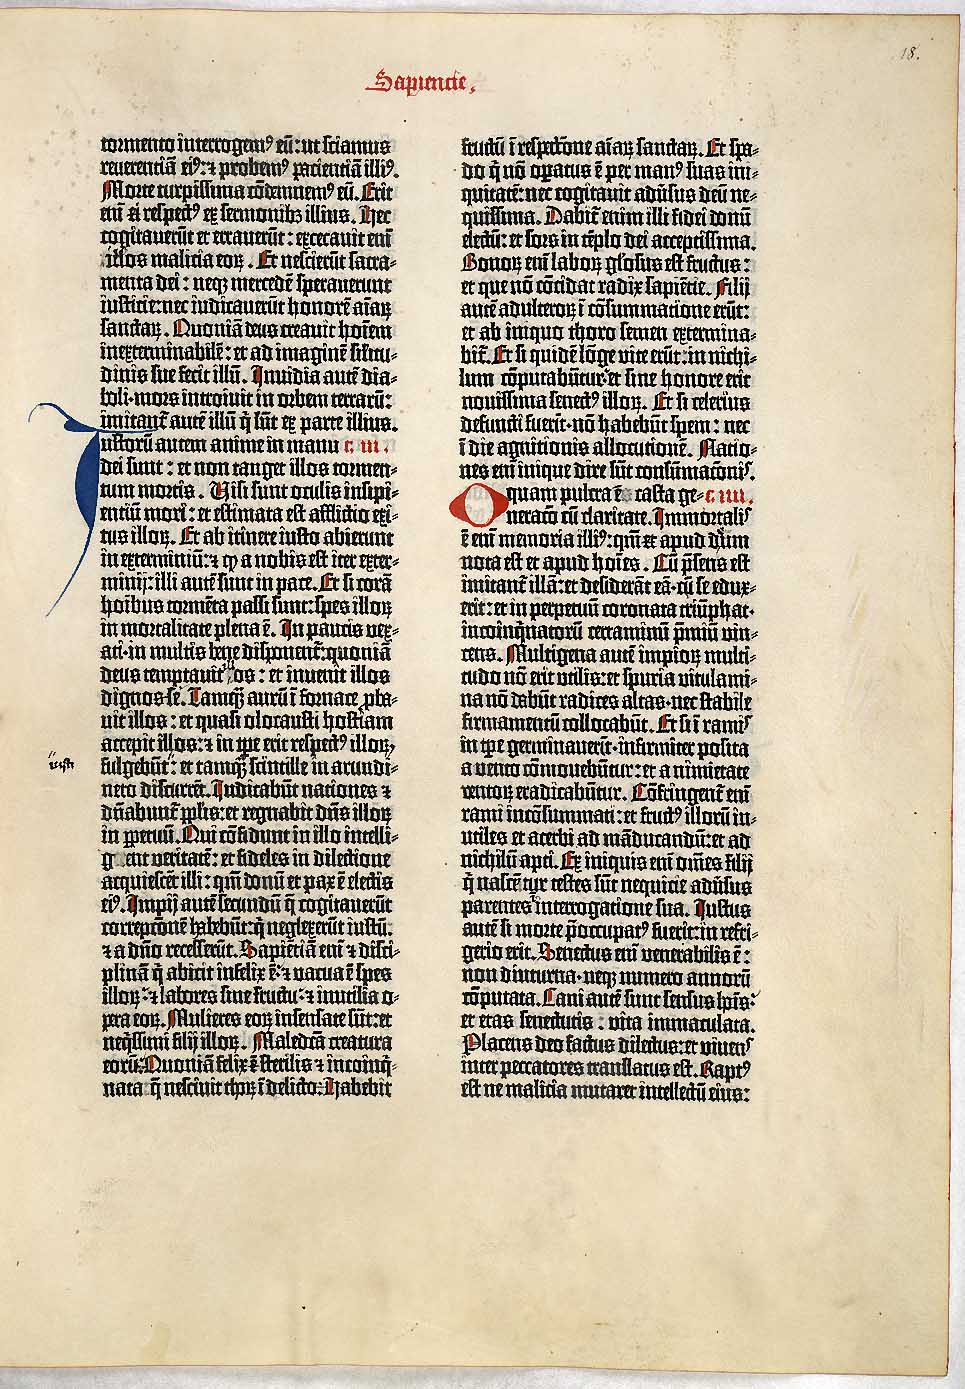 18.
Sapiencie.
tormento interrogemꝰ eũ: ut sciamus
reuerentiã eiꝰ: ⁊ probemꝰ pacientiã illiꝰ.
Morte turpissima cõdemnemꝰ eũ. Erit
eni̅ ei respectꝰ ex sermonibꝫ illius. Hec
cogitauerũt et errauerũt: excecauit eni̅
illos malicia eoꝝ. Et nescierũt sacra-
menta dei: neqꝫ mercedẽ sperauerunt
iusticie: nec iudicauerũt honorẽ ai̅aꝝ
sanctaꝝ. Quoniã deus creauit hoi̅em
inexterminabilẽ: et ad imaginẽ sil̓itu-
dinis sue fecit illũ. Inuidia autẽ dia-
boli· mors introiuit in orbem terrarũ:
imitant᷑ autẽ illũ q̇ sũt ex parte illius.
Iustorũ autem anime in manu c. iii.
dei sunt: et non tanget illos tormen-
tum mortis. Visi sunt oculis insipi-
entiũ mori: et estimata est afflictio exi-
tus illoꝝ. Et ab itinere iusto abierunt
in exterminiũ: ⁊ qɔ a nobis est iter exter-
minij: illi autẽ sunt in pace. Et si corã
hoi̅bus tormẽta passi sunt: spes illoꝝ
in mortalitate plena ẽ. In paucis vex-
ati· in multis bene disponent᷑: quoniã
deus temptauit illos: et inuenit illos
dignos se. Tamqꝫ̃ aurũ i̅ fornace ꝓba-
uit illos: et quasi olocausti hostiam
accepit illos: ⁊ in tp̅e erit respectꝰ illoꝝ,
iusti
fulgebũt: et tamqꝫ̃ scintille in arundi-
neto discurrẽt. Iudicabũt nationes ⁊
dñabunt᷑ ppl̓is: et regnabit dñs illoꝝ
in ꝑpetuũ. Qui cõfidunt in illo intelli-
g ent veritatẽ: et fideles in dilectione
acquiescẽt illi: qm̅ donũ et pax ẽ electis
eiꝰ. Impij autẽ secundũ q̃ cogitauerũt
correptõnẽ habebũt: q̇ neglexerũt iustũ:
⁊ a dño recesserũt. Sapiẽtiã eni̅ ⁊ disci-
plinã q̇ abicit infelix ẽ: ⁊ vacua ẽ spes
illoꝝ: ⁊ labores sine fructu: ⁊ inutilia o-
pera eoꝝ. Mulieres eoꝝ insensate sũt: et
neq̇ssimi filij illoꝝ. Maledc̅a creatura
eorũ: Quoniã felix ẽ sterilis ⁊ incoinq̇-
nata q̃ nesciuit thoꝝ i̅ delicto: habebit
fructũ i̅ respectõne ai̅aꝝ sanctaꝝ. Et spa-
do q̇ nõ oꝑatus ẽ per manꝰ suas ini-
quitatẽ: nec cogitauit adũsus deũ ne-
quissima. Dabit᷑ enim illi fidei donũ
electũ: et sors in tẽplo dei acceptissima.
Bonoꝝ eni̅ laboꝝ gl̓osus est fructus:
et que nõ cõcidat radix sapiẽtie. Filij
autẽ adulteroꝝ i̅ cõsummatione erũt:
et ab iniquo thoro semen extermina-
bit᷑. Et si quidẽ lõge vite erũt: in nichi-
lum cõputabũtur: et sine honore erit
nouissima senectꝰ illoꝝ. Et si celerius
defuncti fuerit· nõ habebũt spem: nec
i̅ die agnitionis allocutionẽ. Natio-
nes eni̅ inique dire sũt consũmac̅onis.
O quam pulcra ẽ casta ge- c. iiii.
nerac̅o cũ claritate. Immortalis
ẽ eni̅ memoria illiꝰ: qm̅ et apud deum
nota est et apud hoi̅es. Cũ p̅sens est
imitant᷑ illã: et desiderãt eã· cũ se edux-
erit: et in perpetuũ coronata triũphat·
incoinq̇natorũ certaminũ p̅miũ vin-
cens. Multigena autẽ impioꝝ multi-
tudo nõ erit utilis: et spuria vitulami-
na nõ dabũt radices altas· nec stabile
firmamentũ collocabũt. Et si i̅ ramis
in tp̅e germinauerit· infirmiter posita
a vento cõmouebũtur: et a nimietate
ventoꝝ eradicabũtur. Cõfringent᷑ eni̅
rami incõsummati: et fructꝰ illorũ in-
utiles et acerbi ad mãducandũ: et ad
nichilũ apti. Ex iniquis eni̅ om̅es filij
q̇ nascẽtur testes sũt nequicie adũsus
parentes interrogatione sua. Iustus
autẽ si morte p̅occupatꝰ fuerit: in refri-
gerio erit. Senectus eni̅ venerabilis ẽ:
non diuturna· neqꝫ numero annorũ
cõputata. Cani autẽ sunt sensus ho̅is:
et etas senectutis: vita immaculata.
Placens deo factus dilectus: et viuens
inter peccatores translatus est. Raptꝰ
est ne malicia mutaret intellectũ eius: